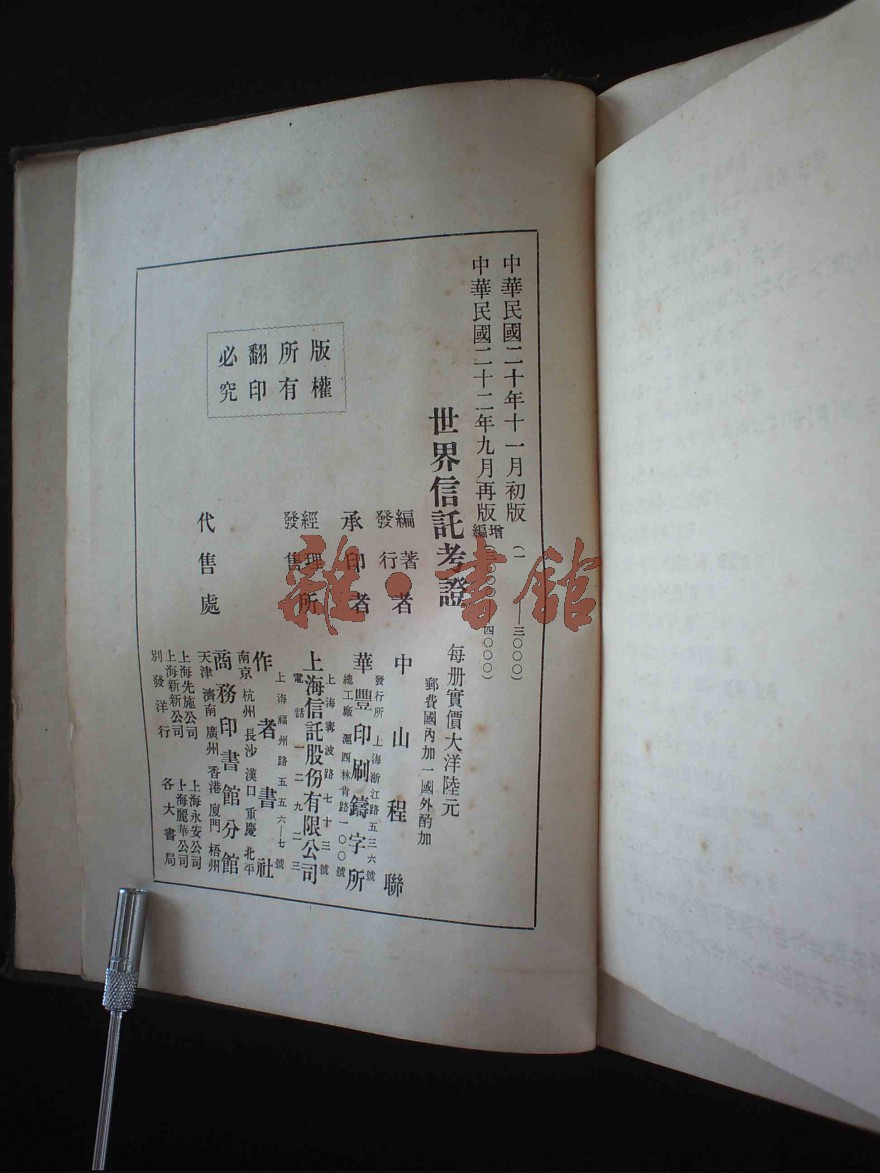 中華民國二十年十一月初版（一——三〇〇〇）
中華民國二十二年九月再版增編
世界信託考證
每册實價大洋陸元
郵費國內加一國外酌加
版權所有
翻印必究
編著者
發行者
中山程聯
發行所 上海浙江路五三六號
承印者
華豐印刷鑄字所
總工廠 滬西林肯路一〇〇號
上海寗波路七十三號
經理所
發售
上海信託股份有限公司
電話一二九二三
上海福州路五五六—七號
作者書社
代售處
南京 杭州 長沙 漢口 重慶 北平
商務印書館分館
天津 濟南 廣州 香港 廈門 梧州
上海先施公司 上海永安公司
上海新新公司 上海麗華公司
別發洋行 各大書局
雜·書館